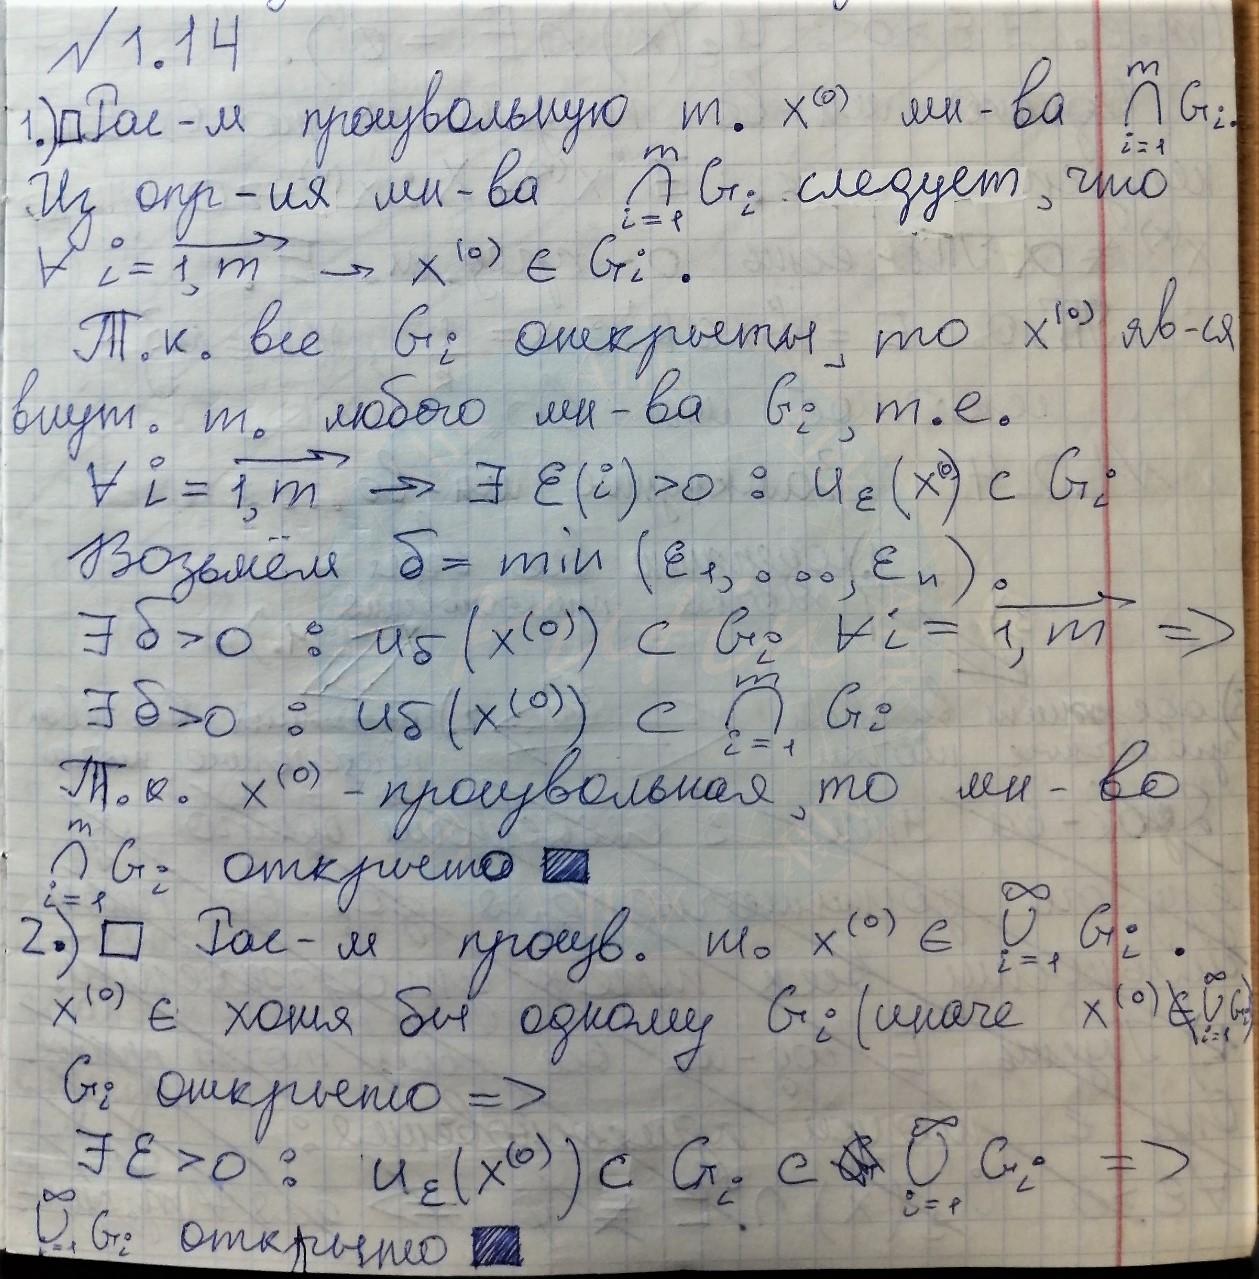 №1.14
1.)□Рас-м произвольную т. x⁽⁰⁾ мн-ва ⋂_{i=1}^{m} Gᵢ.
Из опр-ия мн-ва ⋂_{i=1}^{m} Gᵢ следует, что
∀ i = \overrightarrow{1,m} → x⁽⁰⁾ ∈ Gᵢ.
Т.к. все Gᵢ открыты, то x⁽⁰⁾ яв-ся
внут. т. любого мн-ва Gᵢ, т.е.
∀ i = \overrightarrow{1,m} → ∃ ε(i) > 0 : U_ε(x⁽⁰⁾) ⊂ Gᵢ
Возьмём δ = min (ε₁, ...., εₙ).
∃ δ > 0 : U_δ(x⁽⁰⁾) ⊂ Gᵢ ∀ i = \overrightarrow{1,m} =>
∃ δ > 0 : U_δ(x⁽⁰⁾) ⊂ ⋂_{i=1}^{m} Gᵢ
Т.к. x⁽⁰⁾ - произвольная, то мн-во
⋂_{i=1}^{m} Gᵢ открыто ■
2.) □ Рас-м произв. т. x⁽⁰⁾ ∈ ⋃_{i=1}^{∞} Gᵢ.
x⁽⁰⁾ ∈ хотя бы одному Gᵢ (иначе x⁽⁰⁾ ∉ ⋃_{i=1}^{∞} Gᵢ)
Gᵢ открыто =>
∃ ε > 0 : U_ε(x⁽⁰⁾) ⊂ Gᵢ ⊂ ⋃_{i=1}^{∞} Gᵢ =>
⋃_{i=1}^{∞} Gᵢ открыто ■